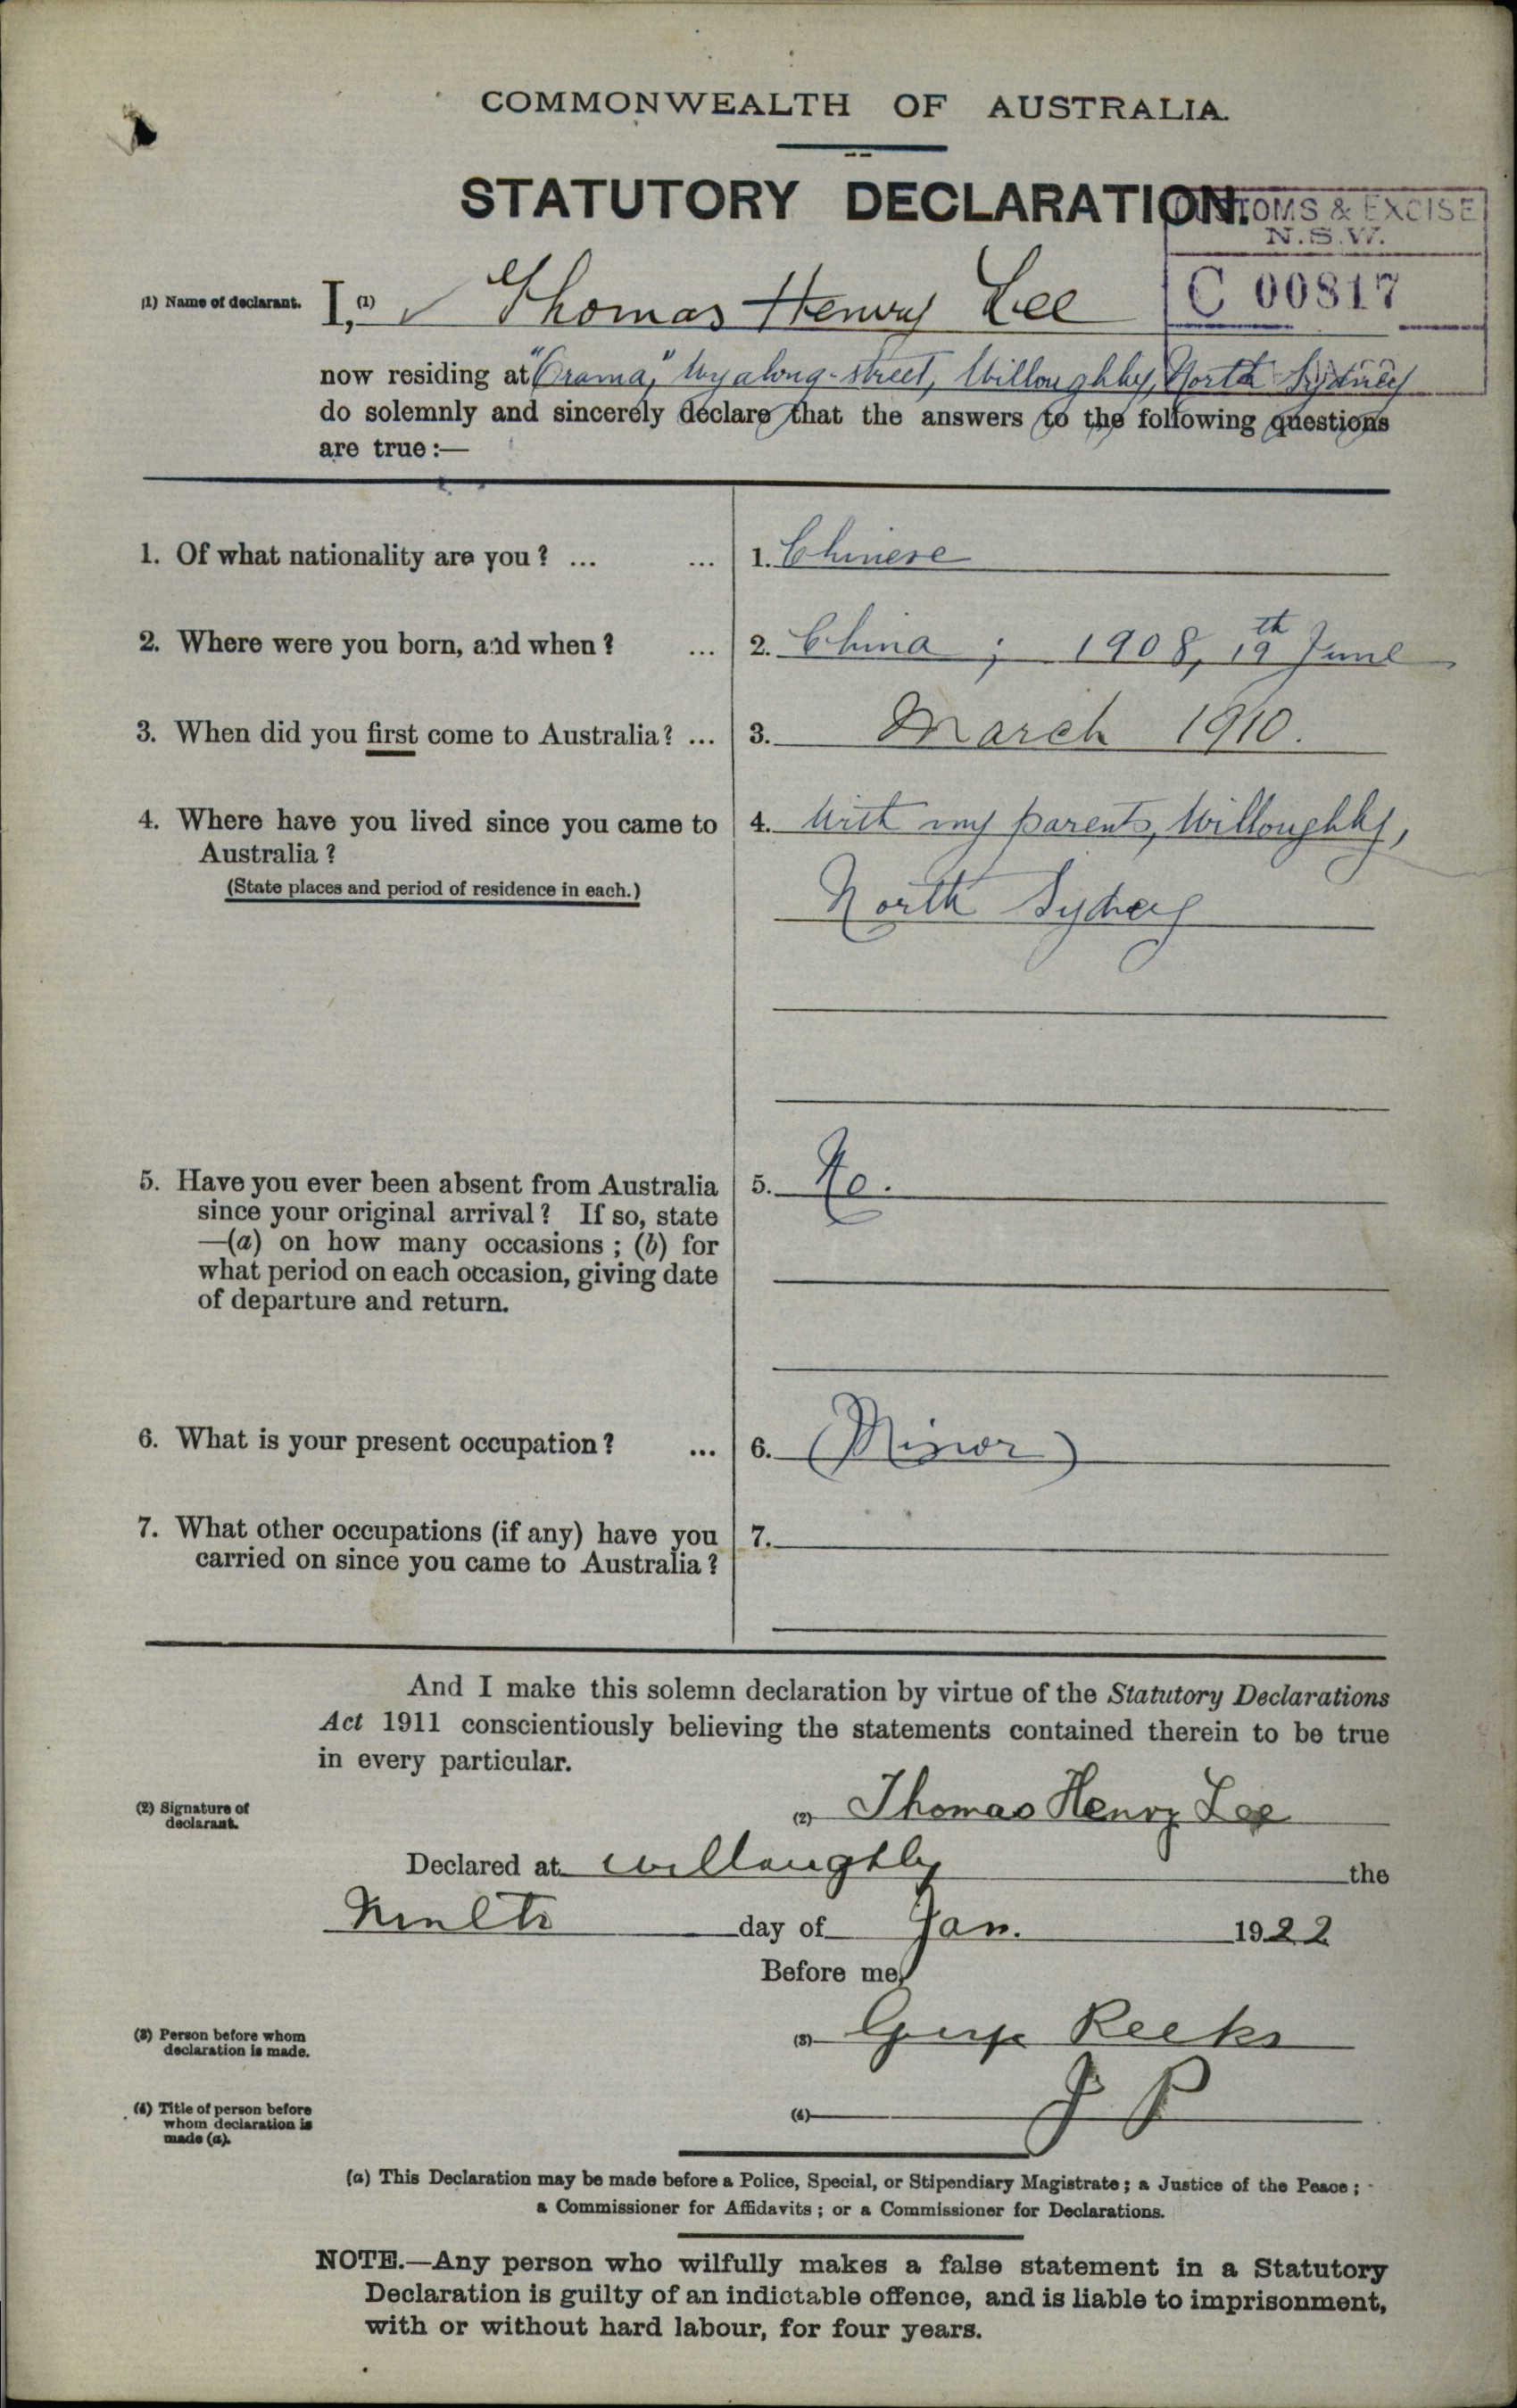 COMMONWEALTH OF AUSTRALIA.
STATUTORY DECLARATION.
TOMS & EXCISE
N.S.W.
C 00817
(1) Name of declarant. I, (1) Thomas Henry Lee
now residing at "Orama," Wyalong-street, Willoughby, North Sydney
do solemnly and sincerely declare that the answers to the following questions
are true:—
1. Of what nationality are you? ... ... 1. Chinese
2. Where were you born, and when? ... 2. China ; 1908, 19th June
3. When did you first come to Australia? ... 3. March 1910.
4. Where have you lived since you came to 4. With my parents, Willoughby,
Australia?
(State places and period of residence in each.) North Sydney
5. Have you ever been absent from Australia 5. No.
since your original arrival? If so, state
—(a) on how many occasions; (b) for
what period on each occasion, giving date
of departure and return.
6. What is your present occupation? ... 6. (Minor)
7. What other occupations (if any) have you 7.
carried on since you came to Australia?
And I make this solemn declaration by virtue of the Statutory Declarations
Act 1911 conscientiously believing the statements contained therein to be true
in every particular.
(2) Signature of
declarant. (2) Thomas Henry Lee
Declared at Willoughby the
day of Jan. 1922
Before me,
(3) Person before whom
declaration is made. (3) Reeks
(4) Title of person before
whom declaration is
made (a). (4) J P
(a) This Declaration may be made before a Police, Special, or Stipendiary Magistrate; a Justice of the Peace;
a Commissioner for Affidavits; or a Commissioner for Declarations.
NOTE.—Any person who wilfully makes a false statement in a Statutory
Declaration is guilty of an indictable offence, and is liable to imprisonment,
with or without hard labour, for four years.